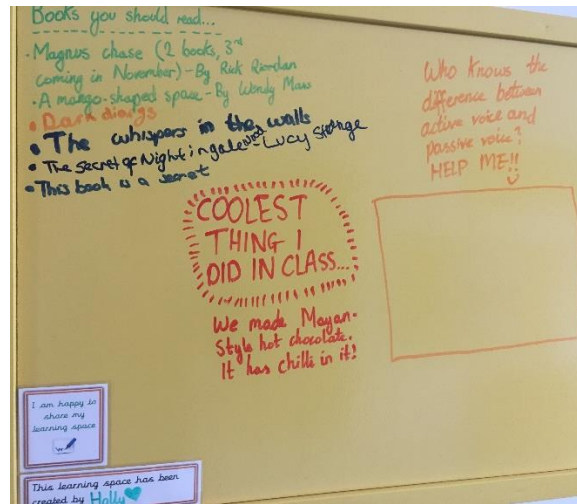 Books you should read...
· Magnus chase (2 books, 3rd
coming in November) - By Rick Riordan
· A mango-shaped space - By Wendy Mass
• Dark diaries
• The whispers in the walls
• The secret of Nightingale wood Lucy Strange
• This book is a secret
Who knows the
difference between
active voice and
passive voice?
HELP ME!!
COOLEST
THING I
DID IN CLASS...
We made Mayan-
Style hot chocolate.
It has chilli in it!
I am happy to
share my
learning space
This learning space has been
created by Holly